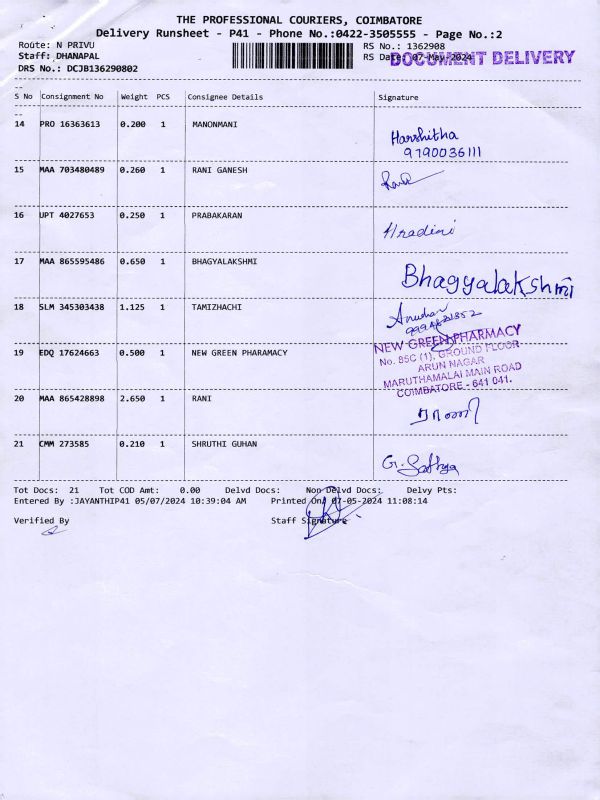 THE PROFESSIONAL COURIERS, COIMBATORE
Delivery Runsheet - P41 - Phone No.:0422-3505555 - Page No.:2
Route: N PRIVU RS No.: 1362908
Staff: DHANAPAL RS Date: 07-May-2024 DOCUMENT DELIVERY
DRS No.: DCJB136290802
S No Consignment No Weight PCS Consignee Details Signature
14 PRO 16363613 0.200 1 MANONMANI
Harshitha
9790036111
15 MAA 703480489 0.260 1 RANI GANESH
16 UPT 4027653 0.250 1 PRABAKARAN
Hradini
17 MAA 865595486 0.650 1 BHAGYALAKSHMI
Bhagyalakshmi
18 SLM 345303438 1.125 1 TAMIZHACHI
19 EDQ 17624663 0.500 1 NEW GREEN PHARAMACY
NEW GREEN PHARMACY
No. 85C (1), GROUND FLOOR
ARUN NAGAR
MARUTHAMALAI MAIN ROAD
COIMBATORE - 641 041.
20 MAA 865428898 2.650 1 RANI
21 CMM 273585 0.210 1 SHRUTHI GUHAN
G. Sathya
Tot Docs: 21 Tot COD Amt: 0.00 Delvd Docs: Non Delvd Docs: Delvy Pts:
Entered By :JAYANTHIP41 05/07/2024 10:39:04 AM Printed On 07-05-2024 11:08:14
Verified By Staff Signature